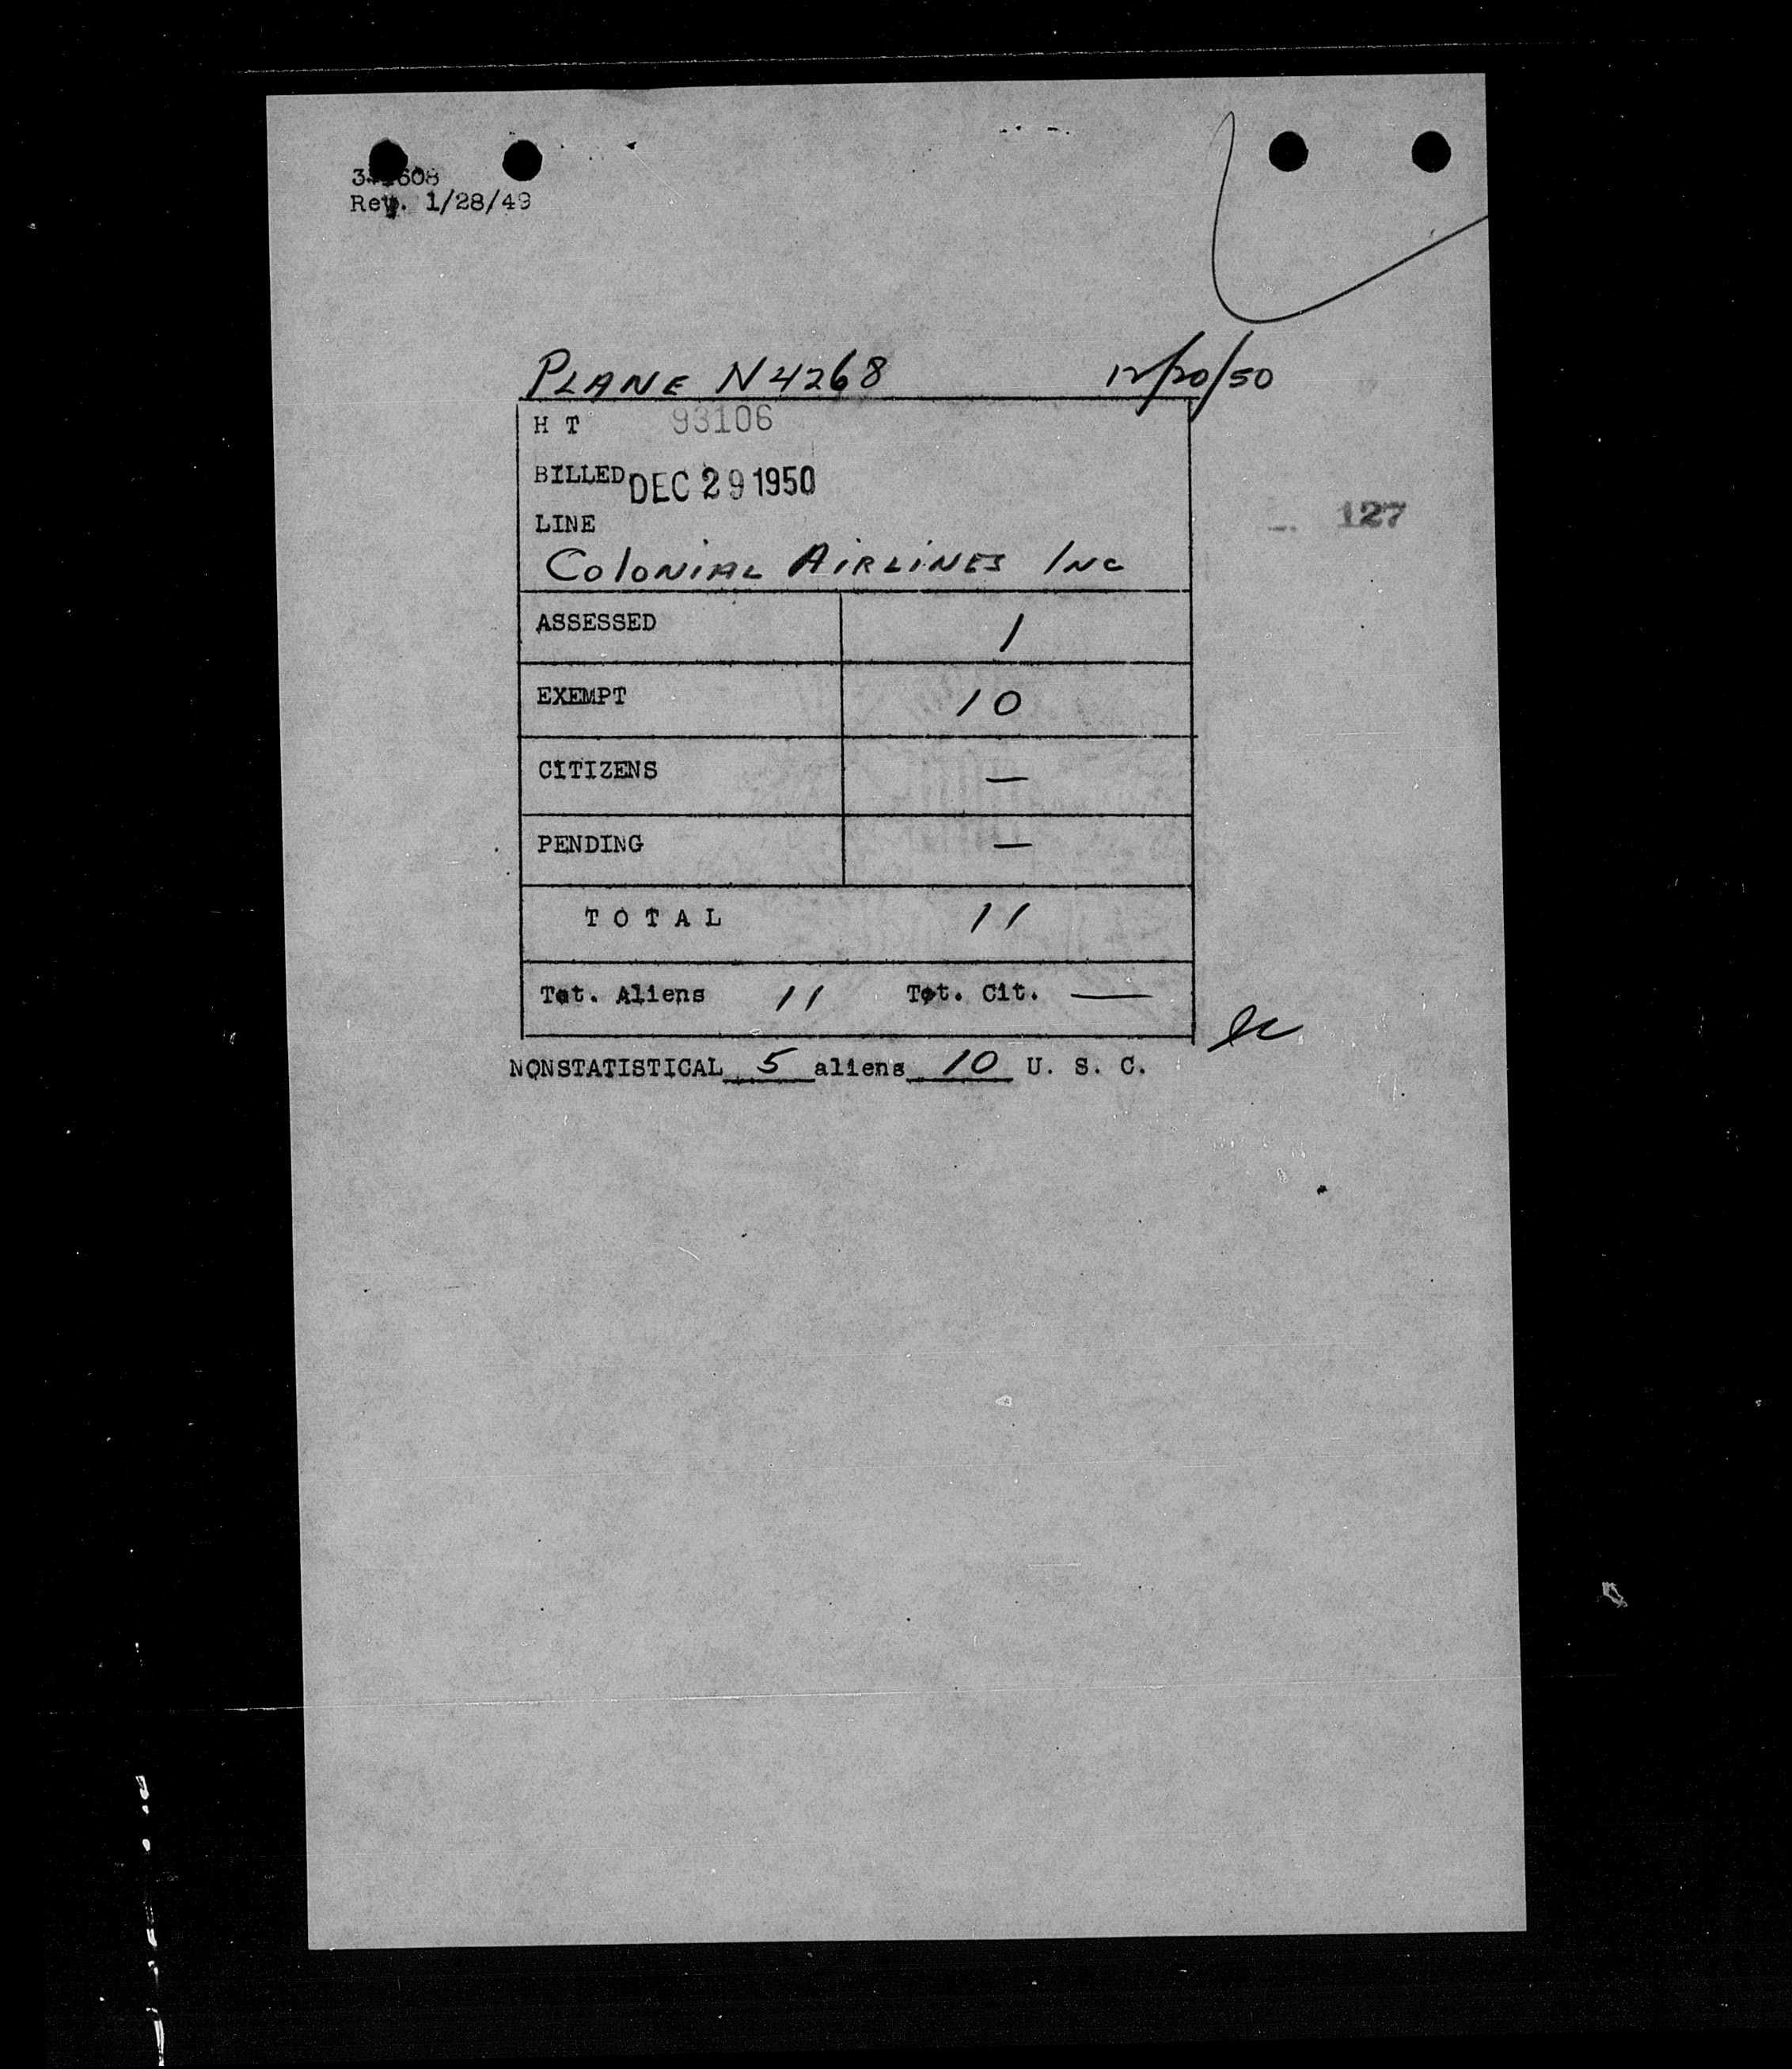 Rev. 1/28/49
PLANE N4268 12/20/50
H T 93106
BILLED DEC 29 1950
LINE
127
COLONIAL AIRLINES INC
ASSESSED 1
EXEMPT 10
CITIZENS —
PENDING —
TOTAL 11
Tot. Aliens 11 Tot. Cit. —
NONSTATISTICAL 5 aliens 10 U. S. C.